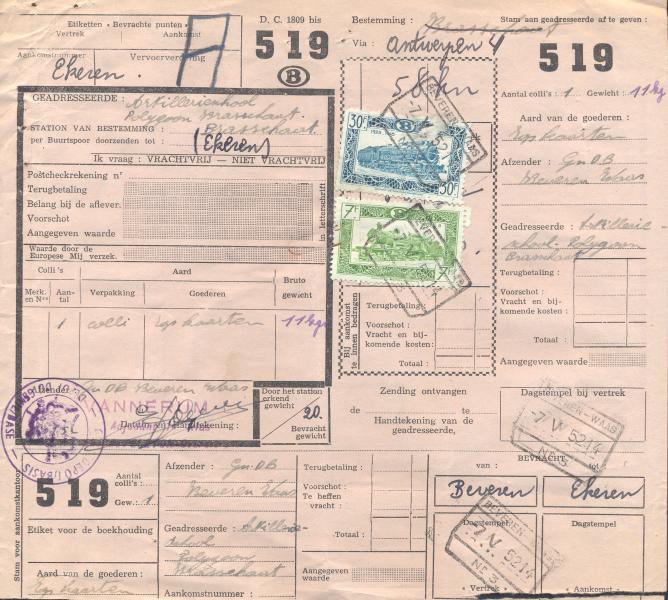 Etiketten • Bevrachte punten •
Vertrek Aankomst
Aankomstnummer Vervoerverzekering
Ekeren.
D. C. 1809 bis
519
B
Bestemming : Brasschaat
Via : Antwerpen 4
58 km
Stam aan geadresseerde af te geven :
519
Aantal colli's : 1 Gewicht : 11 kg
Aard van de goederen :
Afzender : Gn DB
Beveren Waas
Geadresseerde : Artillerie-
school Polygoon
Brasschaat
Terugbetaling :
Voorschot :
Vracht en bij-
komende kosten :
Totaal :
Aangegeven waarde
GEADRESSEERDE : Artillerieschool
Polygoon Brasschaat.
STATION VAN BESTEMMING : Brasschaat
per Buurtspoor doorzenden tot : (Ekeren)
Ik vraag : VRACHTVRIJ — NIET VRACHTVRIJ
Postcheckrekening nr
Terugbetaling
Belang bij de aflever.
Voorschot
Aangegeven waarde
in letterschrift
Waarde door de
Europese Mij verzek.
Colli's Aard Bruto gewicht
Merk. en Nrs Aantal Verpakking Goederen
1 colli 11 kgr
30F 30F
7F 7F
BEVEREN-WAAS
7. V. 52
Nr 3
Bij aankomst te innen bedragen
Terugbetaling:
Voorschot :
Vracht en bij-
komende kosten:
Totaal :
Afzender : Gn DB Beveren Waas
VANNERUM
Datum en Handtekening :
Door het station
erkend
gewicht
20.
Bevracht
gewicht
Zending ontvangen
Handtekening van de
geadresseerde,
Dagstempel bij vertrek
BEVEREN-WAAS
7. V. 52 14
Nr 3
Stam voor aankomstkantoor
519
Aantal colli's :
Gew. : 1
Etiket voor de boekhouding
Aard van de goederen :
Afzender : Gn DB
Beveren Waas
Geadresseerde : Artillerie-
school
Polygoon
Brasschaat
Aankomstnummer :
Terugbetaling :
Voorschot :
Te heffen
vracht :
Totaal :
Aangegeven
waarde
BEVRACHT
van : tot :
Beveren Ekeren
Dagstempel Dagstempel
BEVEREN-WAAS
7. V. 52 14
Nr 3
• Vertrek • • Aankomst •